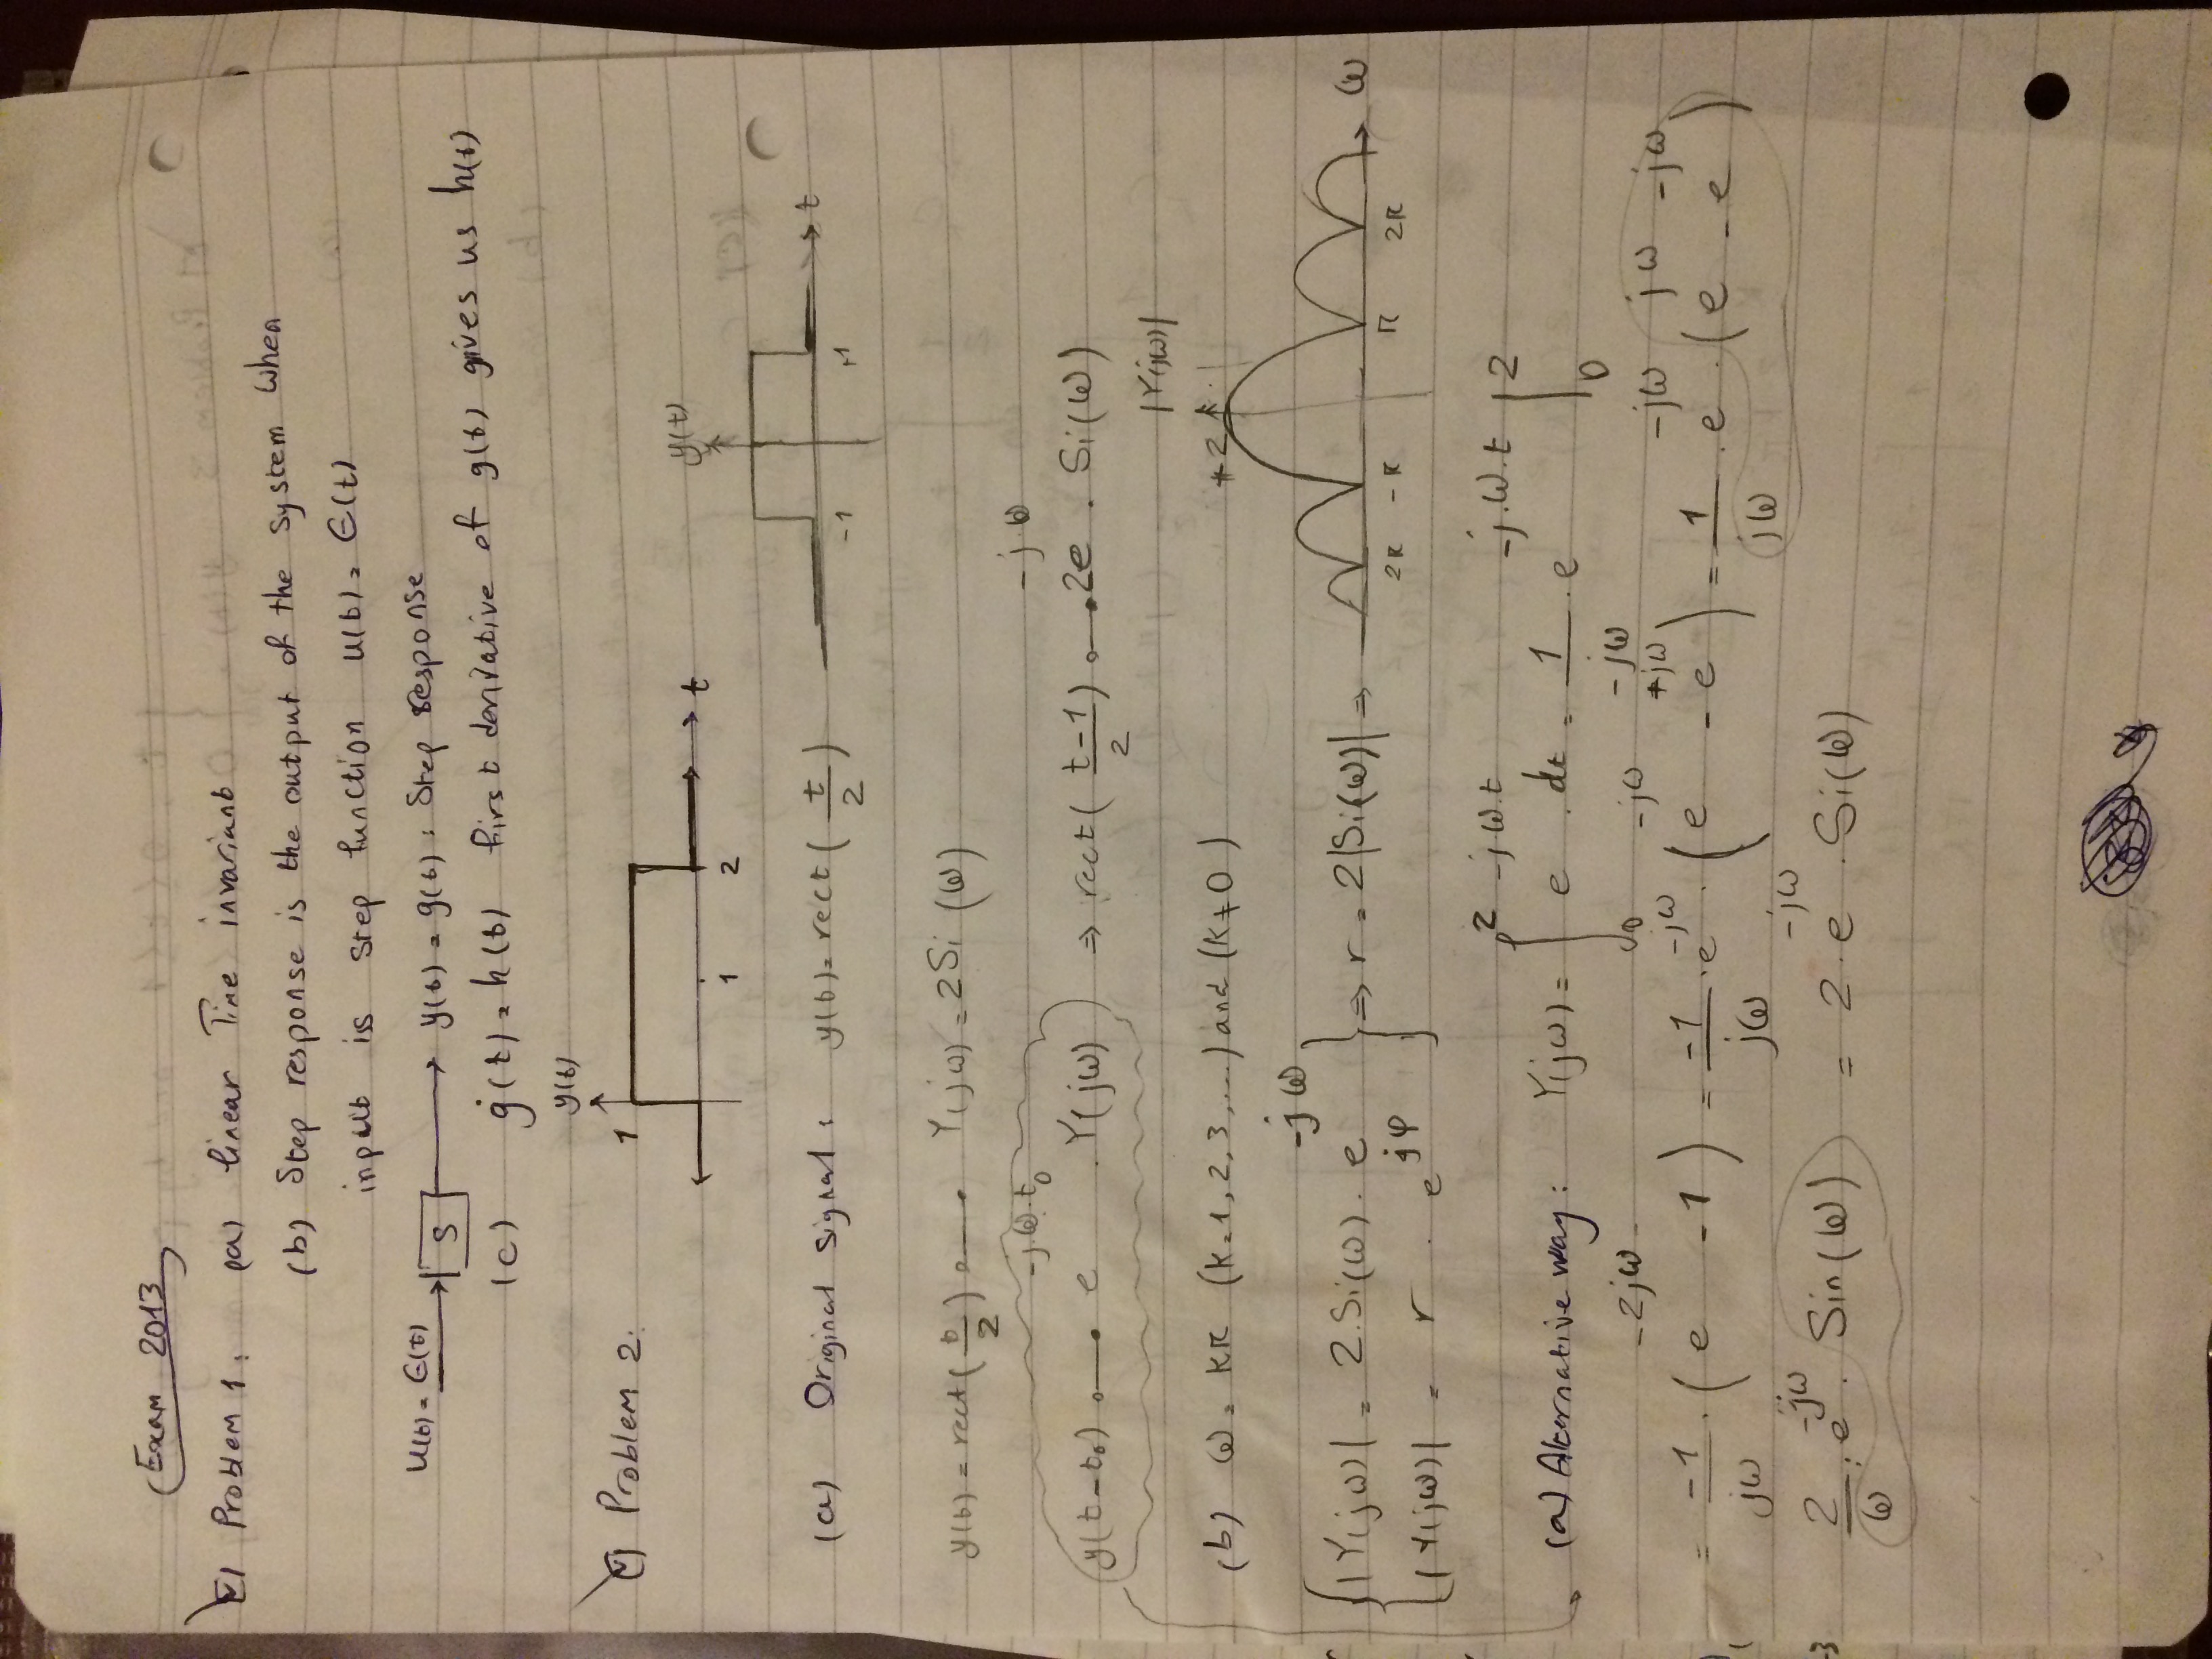 Exam 2013
Problem 1: (a) linear Time invariant
(b) Step response is the output of the system when
input is step function u(t) = ϵ(t)
u(t) = ϵ(t) S y(t) = g(t) : Step response
(c) ġ(t) = h(t) first derivative of g(t) gives us h(t)
y(t)
Problem 2: 1
t
1 2
y(t)
(a) Original signal : y(t) = rect( t/2 )
t
-1 1
y(t) = rect( t/2 ) o—• Y(jω) = 2Si (ω)
y(t-t₀) o—• e^(-j.ω.t₀) . Y(jω) ⇒ rect( (t-1)/2 ) o—• 2e^(-jω) . Si(ω)
|Y(jω)|
(b) ω = kπ (k=1, 2, 3, ...) and (k≠0) 2
{ |Y(jω)| = 2.Si(ω) . e^(-jω) } ⇒ r = 2|Si(ω)| ⇒ ω
{ |Y(jω)| = r . e^(jφ) }
2π -π π 2π
(a) Alternative way : Y(jω) = ∫₀² e^(-jω.t) . dt = 1/(-jω) . e^(-j.ω.t) |₀²
= -1/jω . ( e^(-2jω) - 1 ) = -1/jω . e^(-jω) . ( e^(-jω) - e^(+jω) ) = 1/jω . e^(-jω) . ( e^(jω) - e^(-jω) )
2/ω . e^(-jω) . Sin(ω) = 2 . e^(-jω) . Si(ω)